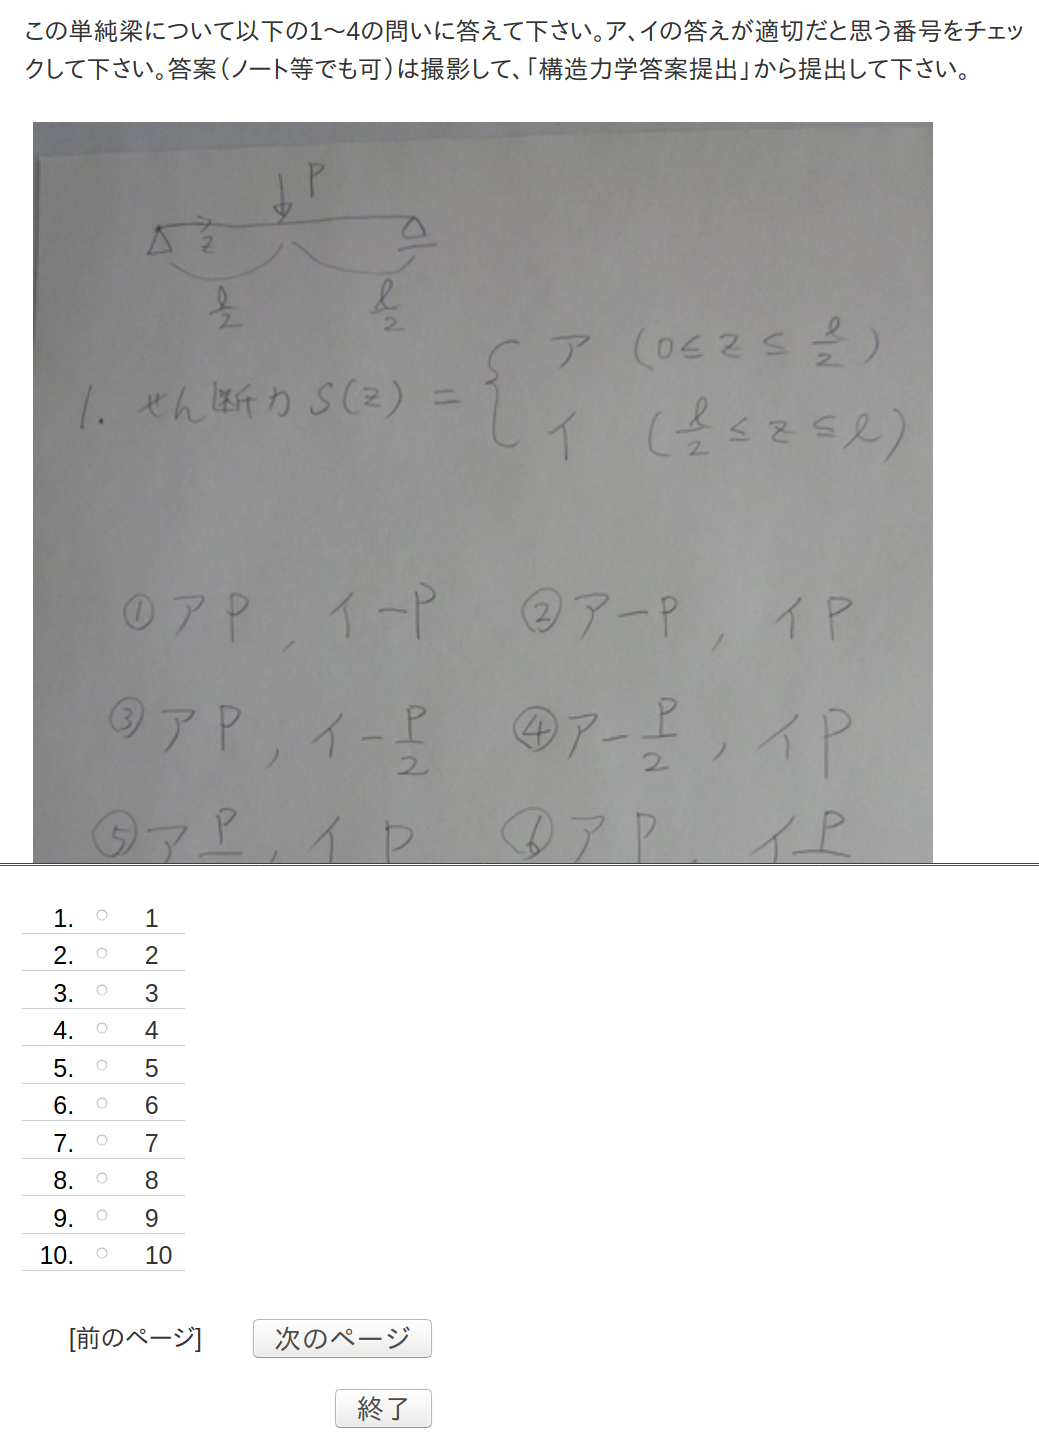 この単純梁について以下の1～4の問いに答えて下さい。ア、イの答えが適切だと思う番号をチェッ
クして下さい。答案（ノート等でも可）は撮影して、「構造力学答案提出」から提出して下さい。
P
z
ℓ/2 ℓ/2
1. せん断力 S(z) = { ア (0≦z≦ℓ/2)
イ (ℓ/2≦z≦ℓ)
① ア P , イ -P ② ア -P , イ P
③ ア P , イ -P/2 ④ ア -P/2 , イ P
⑤ ア P , イ P ⑥ ア P , イ P
1. 1
2. 2
3. 3
4. 4
5. 5
6. 6
7. 7
8. 8
9. 9
10. 10
[前のページ] 次のページ
終了